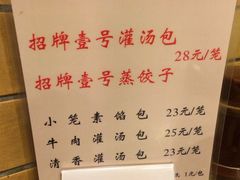 招牌壹号灌汤包
28元/笼
招牌壹号蒸饺子
小笼素馅包 23元/笼
牛肉灌汤包 25元/笼
清香灌汤包 23元/笼
1元/包